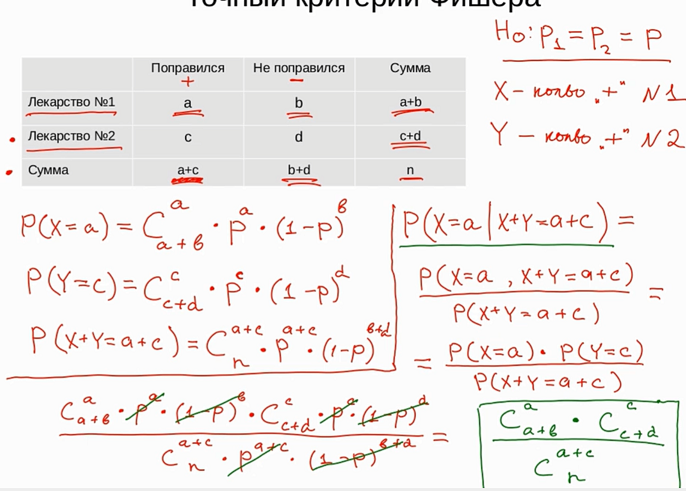 Точный критерий Фишера
Поправился Не поправился Сумма
+ −
Лекарство №1 a b a+b
Лекарство №2 c d c+d
Сумма a+c b+d n
H₀: P₁ = P₂ = P
X – колво „+" N1
Y – колво „+" N2
P(X=a) = C_{a+b}^{a} · p^{a} · (1-p)^{b}
P(Y=c) = C_{c+d}^{c} · p^{c} · (1-p)^{d}
P(X+Y=a+c) = C_{n}^{a+c} · p^{a+c} · (1-p)^{b+d}
P(X=a | X+Y=a+c) =
P(X=a , X+Y=a+c)
P(X+Y=a+c)
=
= P(X=a) · P(Y=c)
P(X+Y=a+c)
C_{a+b}^{a} · p^{a} · (1-p)^{b} · C_{c+d}^{c} · p^{c} · (1-p)^{d}
C_{n}^{a+c} · p^{a+c} · (1-p)^{b+d}
=
C_{a+b}^{a} · C_{c+d}^{c}
C_{n}^{a+c}